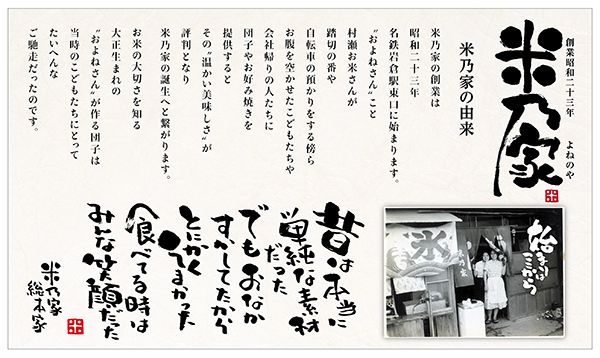 創業昭和二十三年 よねのや
米乃家
米
米乃家の由来
米乃家の創業は
昭和二十三年
名鉄岩倉駅東口に始まります。
〝およねさん〟こと
村瀬お米さんが
踏切の番や
自転車の預かりをする傍ら
お腹を空かせたこどもたちや
会社帰りの人たちに
団子やお好み焼きを
提供すると
その〝温かい美味しさ〟が
評判となり
米乃家の誕生へと繋がります。
お米の大切さを知る
大正生まれの
〝およねさん〟が作る団子は
当時のこどもたちにとって
たいへんな
ご馳走だったのです。
始まりはここから
氷
昔は本当に
単純な素材
だった
でもおなか
すかしてたから
とにかく
うまかった
食べてる時は
みんな笑顔だった
米乃家
総本家
米